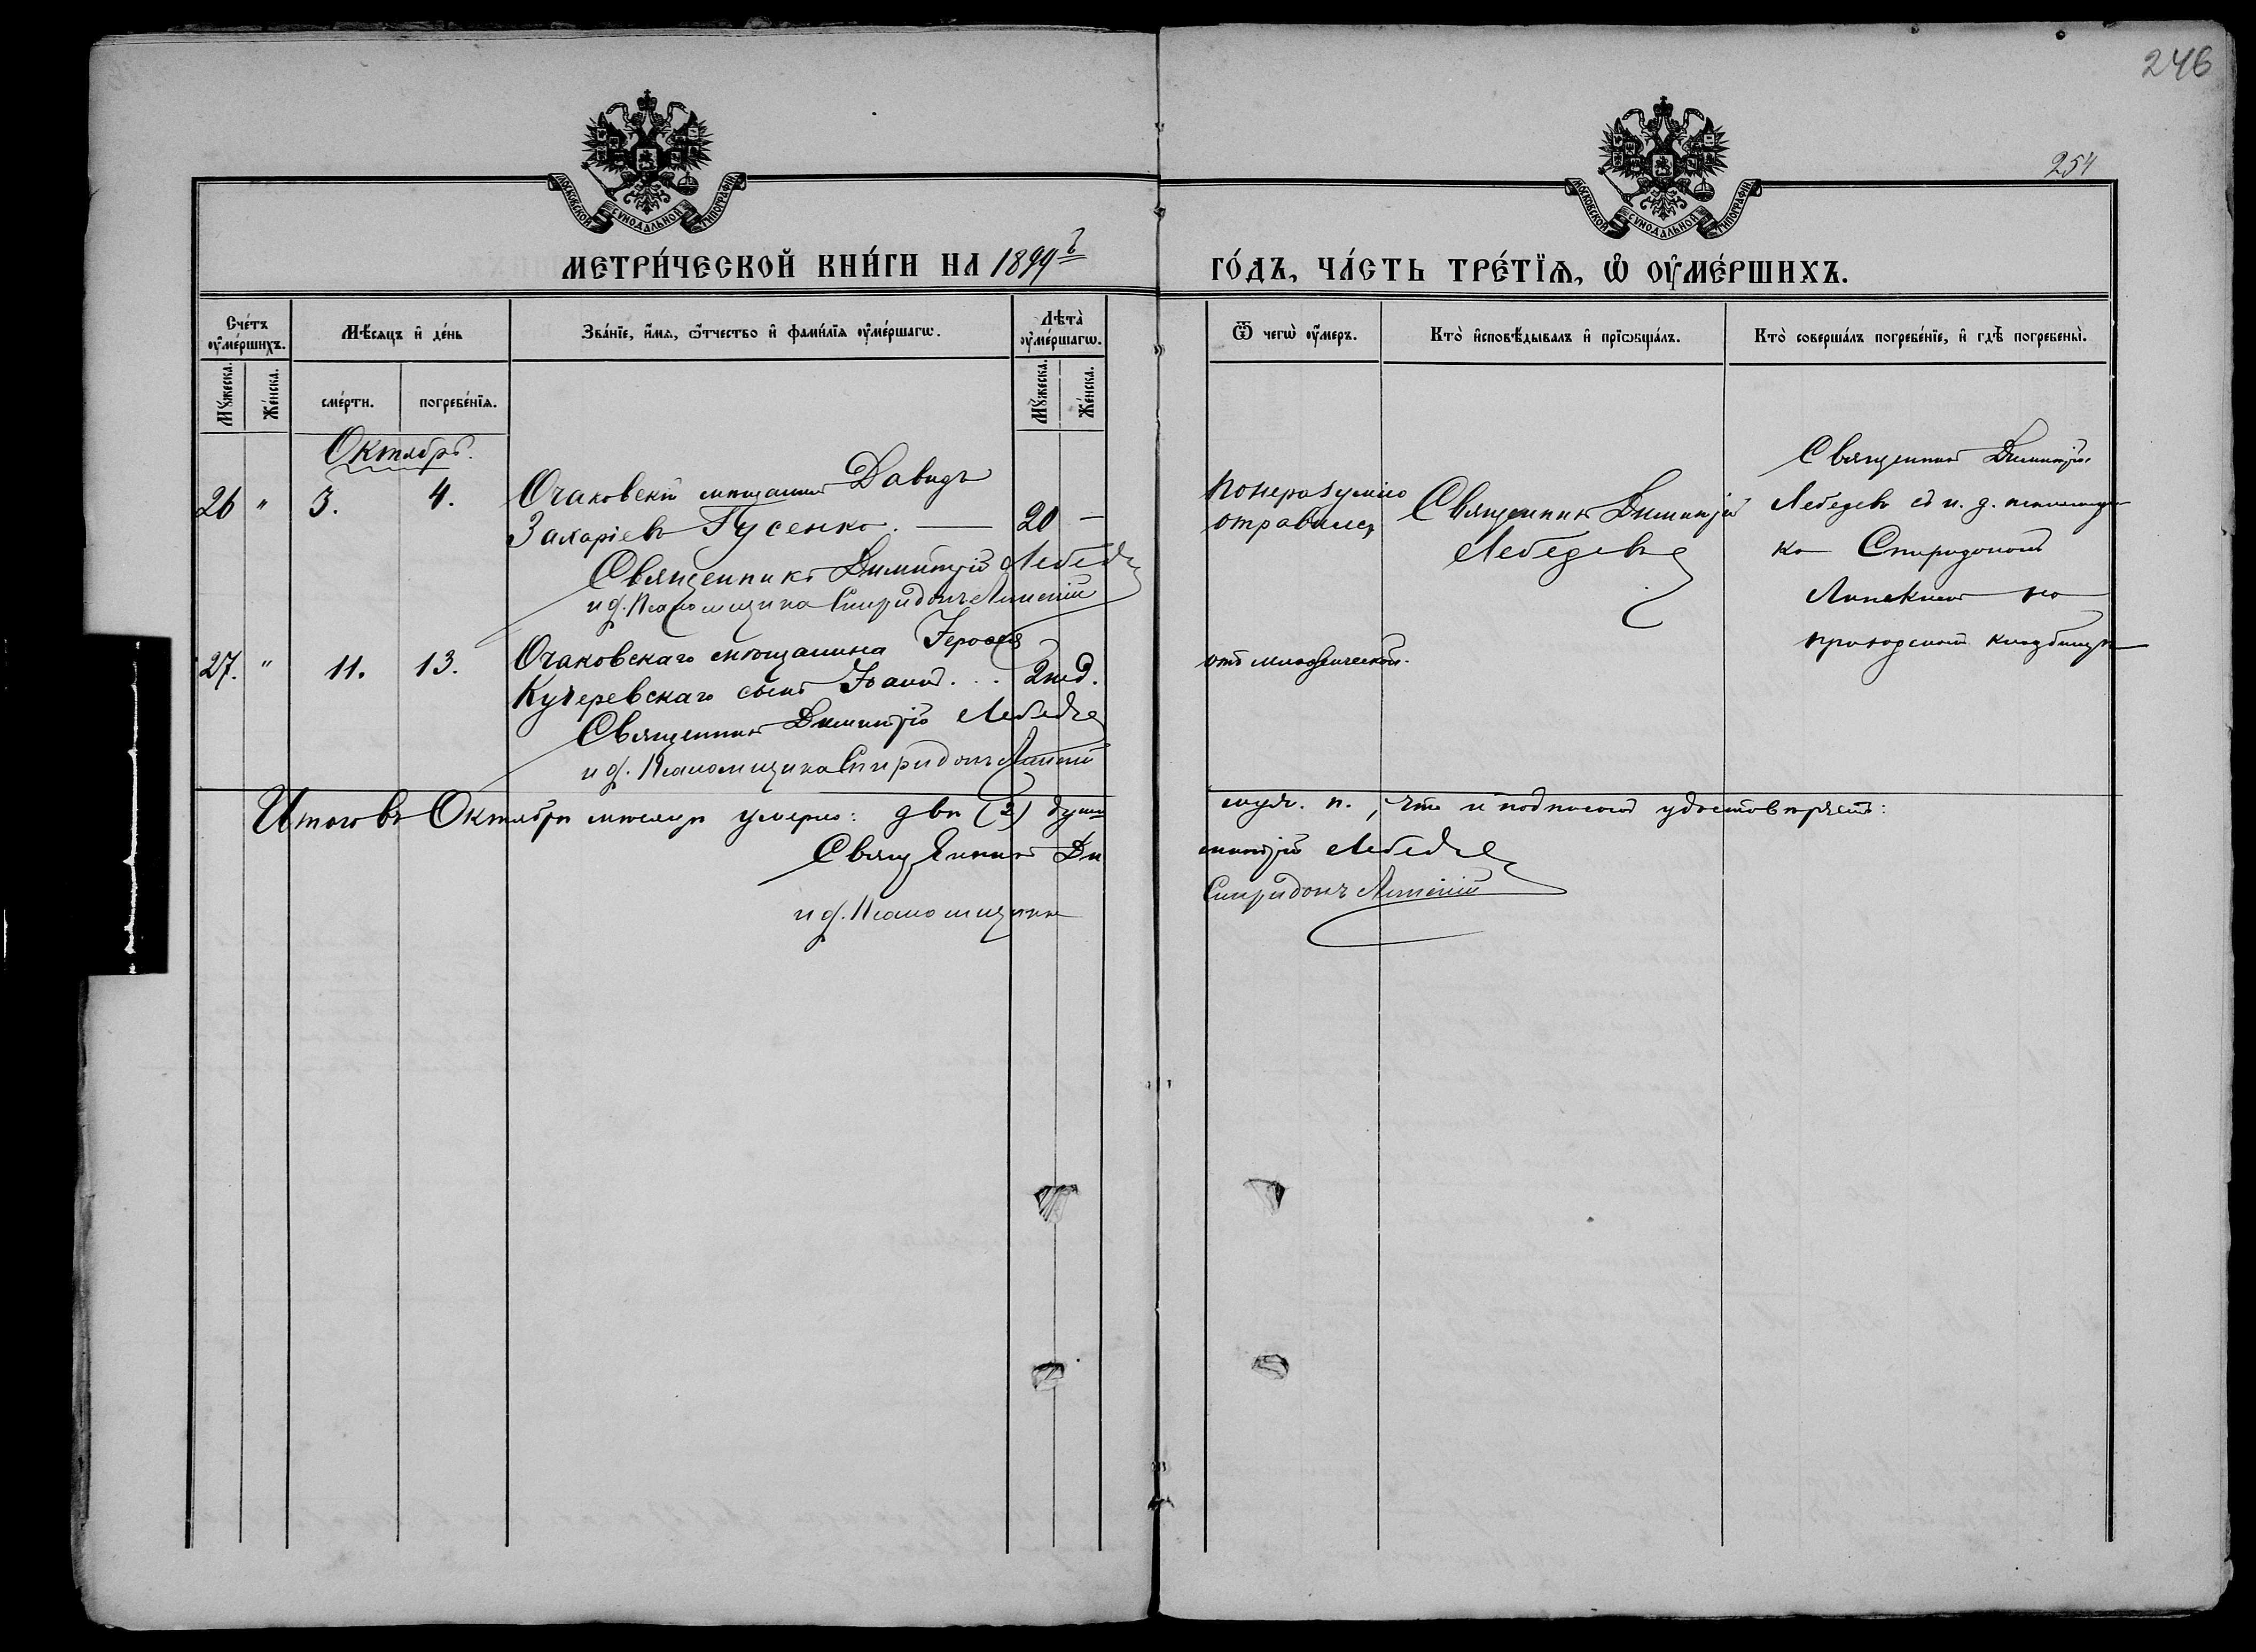 246
254
МОСКОВСКОЙ СѴНОДАЛЬНОЙ ТИПОГРАФІИ
МОСКОВСКОЙ СѴНОДАЛЬНОЙ ТИПОГРАФІИ
МЕТРИ́ЧЕСКОЙ КНИ́ГИ НА 1899 й
ГО́ДЪ, ЧА́СТЬ ТРЕ́ТЇѦ, Ѡ҆ ОУ҆МЕ́РШИХЪ.
Сче́тъ оу҆ме́ршихъ.
Мѣ́сяцъ и҆ де́нь
Зва́нїе, и҆́мѧ, ѻ҆́тчество и҆ фами́лїѧ оу҆ме́ршагѡ.
Лѣта̀ оу҆ме́ршагѡ.
Ѿ чегѡ̀ оу҆́меръ.
Кто̀ и҆сповѣ́дывалъ и҆ прїѡбща́лъ.
Кто̀ соверша́лъ погребе́нїе, и҆ гдѣ̀ погребены̀.
Мꙋ́жеска.
Же́нска.
сме́рти.
погребе́нїѧ.
Мꙋ́жеска.
Же́нска.
Октябрь.
26 " 3. 4. Очаковскій мѣщанинъ Давидъ
Захаріевъ Гусенко. — 20 —
Священникъ Димитрій Лебедевъ
и д. Псаломщика Спиридонъ Липскій
По неразумію
отравился
Священникъ Димитрій
Лебедевъ
Священникъ Димитрій
Лебедевъ съ и. д. псаломщи
ка Спиридономъ
Липскимъ на
приходскомъ кладбищѣ
27. " 11. 13. Очаковскаго мѣщанина Іерофея
Кучеревскаго сынъ Іоаннъ . . . 2 нед.
Священникъ Димитрій Лебедевъ
и д. Псаломщика Спиридонъ Липскій
отъ младенческой.
Итого въ Октябрѣ мѣсяцѣ умерло: двѣ (2) души
муж. п., что и подписомъ удостовѣряемъ:
Священникъ Ди
митрій Лебедевъ
и д. Псаломщика
Спиридонъ Липскій